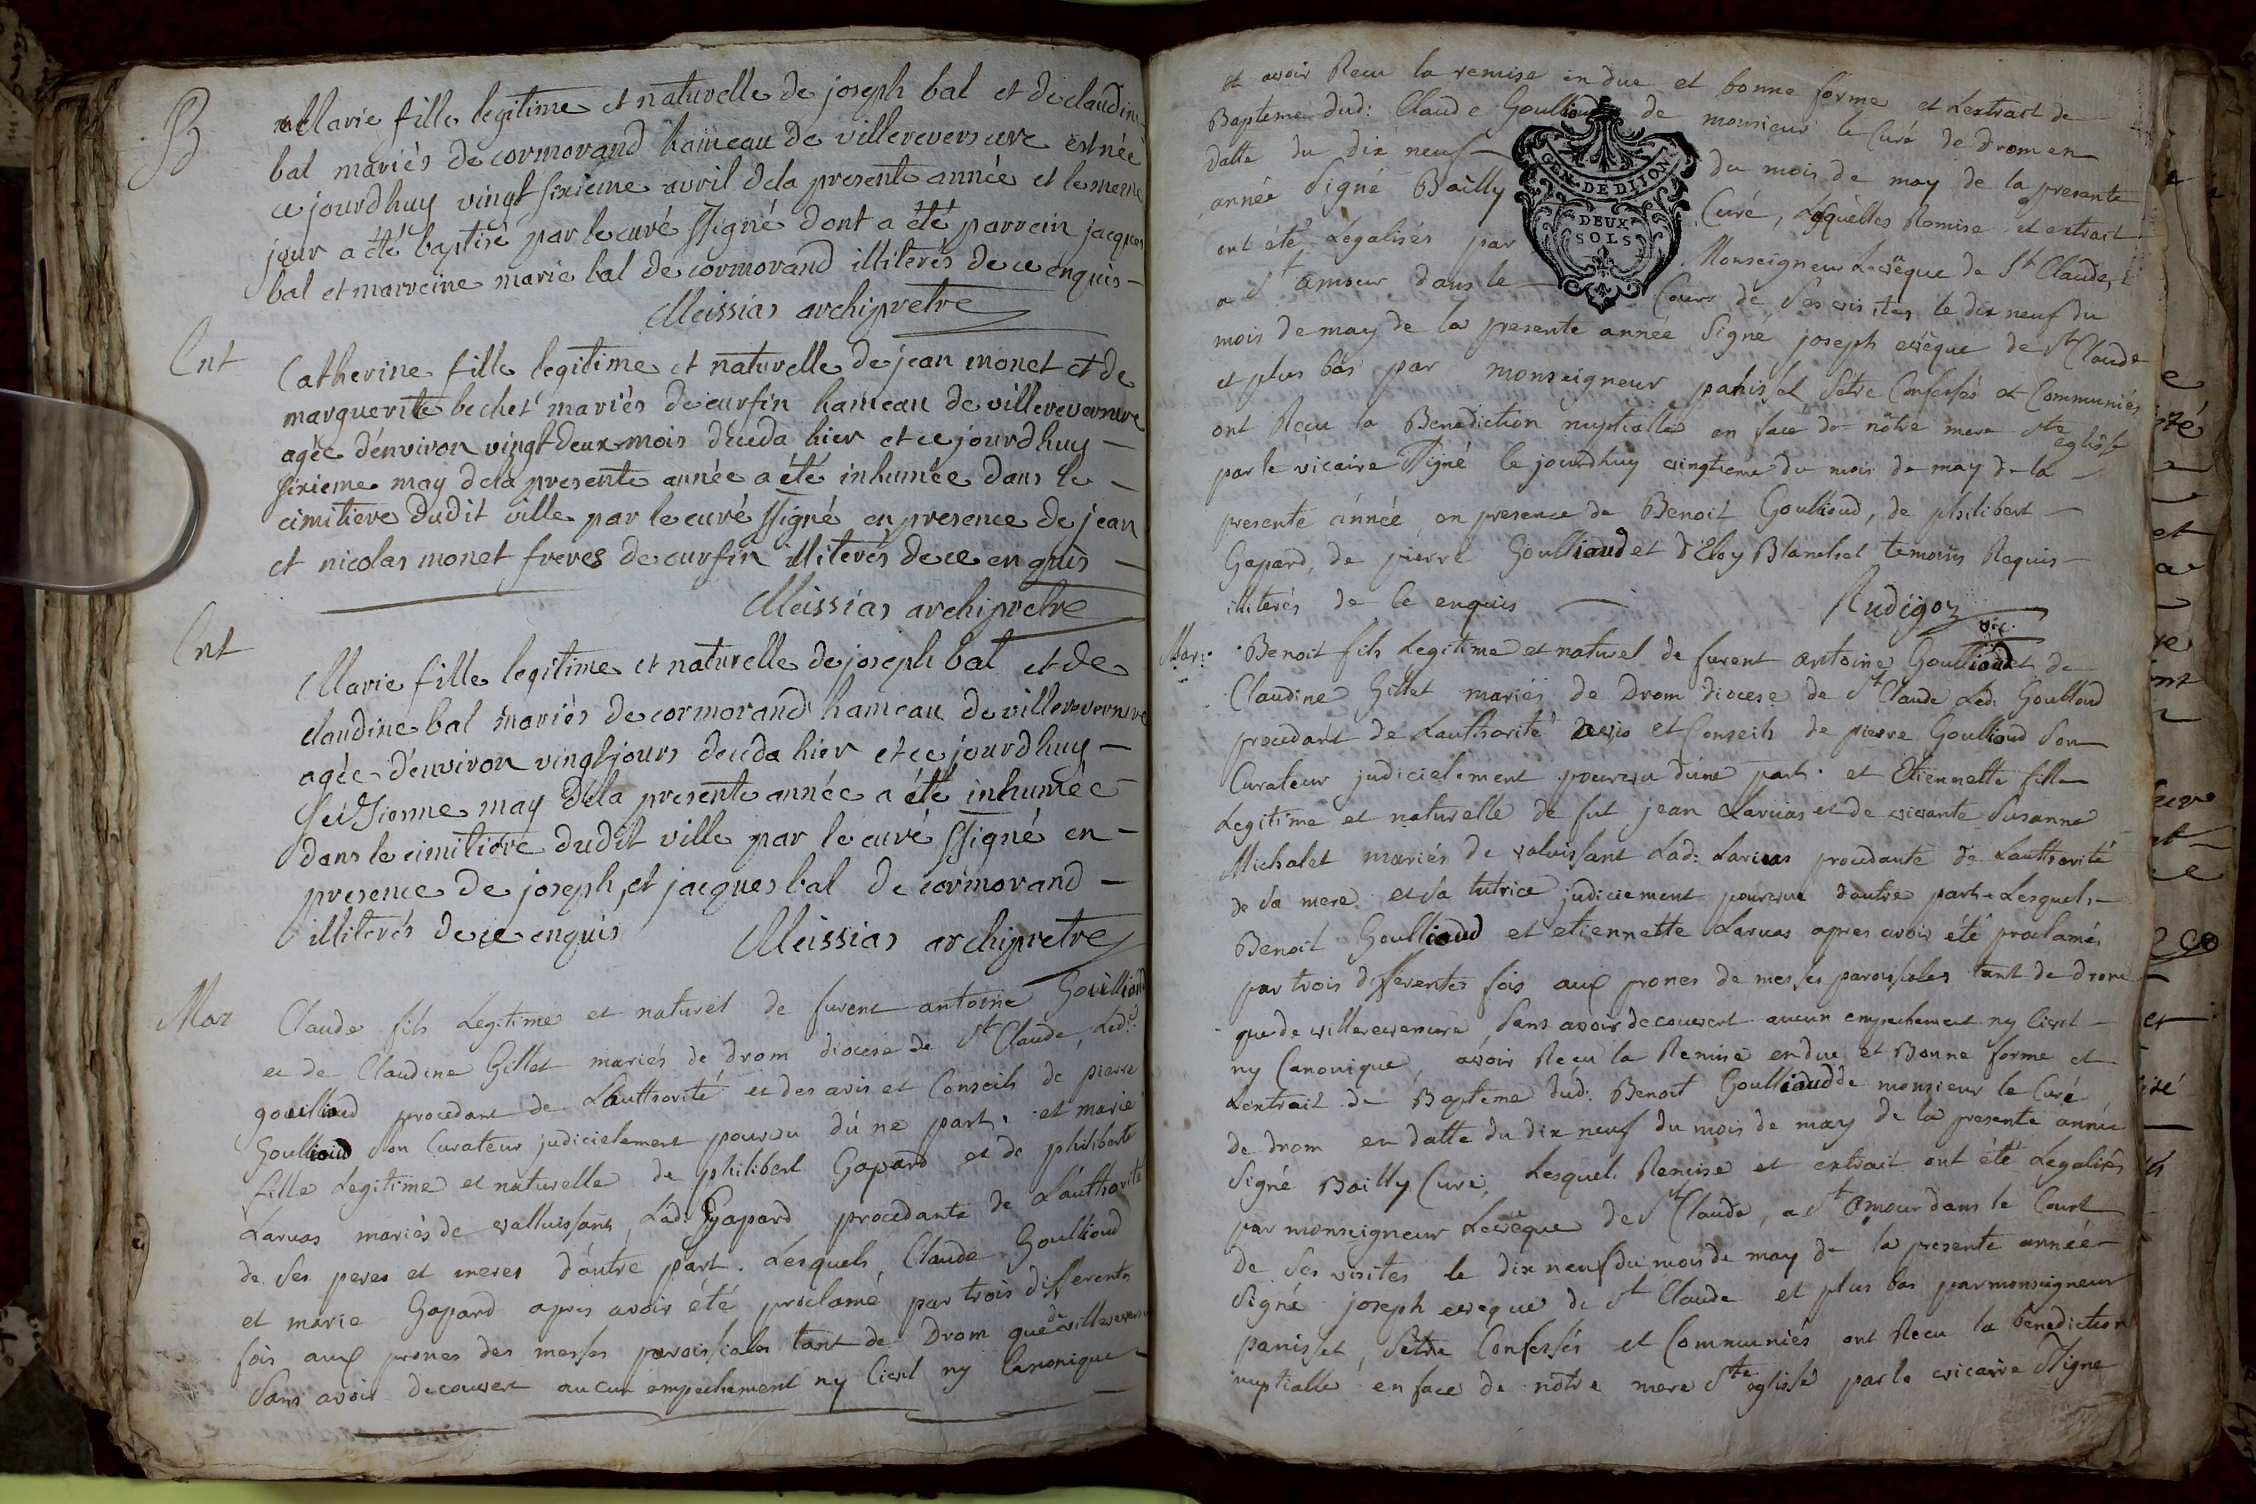 B
Marie fille legitime et naturelle de joseph bal et de claudine
bal mariés de cormorand hameau de villereversure est née
ce jourdhuy vingt sixieme avril de la presente année et le meme
jour a été baptisé par le curé ssigné dont a été parrein jacques
bal et marreine marie bal de cormorand illiterés de ce enquis
Meissias archipretre
Ent
Catherine fille legitime et naturelle de jean monet et de
marguerite bechet mariés de curfin hameau de villereversure
agée d'environ vingt deux mois deceda hier et ce jourdhuy
sixieme may de la presente année a été inhumée dans le
cimitiere dudit ville par le curé ssigné en presence de jean
et nicolas monet freres de curfin illiterés de ce enquis
Meissias archipretre
Ent
Marie fille legitime et naturelle de joseph bal et de
claudine bal mariés de cormorand hameau de villereversure
agée d'environ vingt jours deceda hier et ce jourdhuy
seizieme may de la presente année a été inhumée
dans le cimitiere dudit ville par le curé ssigné en
presence de joseph et jacques bal de cormorand
illiterés de ce enquis Meissias archipretre
Mar
Claude fils Legitime et naturel de furent antoine Goullioud
et de Claudine Gillet mariés de drom diocese de St Claude, Led:
goullioud procedant de Lauthorité et des avis et Conseils de pierre
Goullioud son Curateur judicielement pourvu d'une part. et marie
fille Legitime et naturelle de philibert Gapard et de philiberte
Laruas mariés de valluissant, Lad: Gapard procedante de Lauthorité
de ses peres et meres d'autre part. Lesquels Claude Goullioud
et marie Gapard apres avoir été proclamé par trois differentes
fois aux prones des messes paroissiales tant de Drom que de villereversure
Sans avoir decouvert aucun empechement ny Civil ny Canonique
et avoir Recu la remise en due et bonne forme et Lextrait de
Bapteme dud: Claude Goullioud de monsieur le Curé de drom en
datte du dix neuf du mois de may de la presente
année Signé Bailly Curé, Lesquelles Remise et extrait
ont été Legalisés par Monseigneur Leveque de St Claude,
a St amour dans le Cours de Ses visites le dix neuf du
GEN. DE DIJON
DEUX
SOLS
mois de may de la presente année Signé joseph eveque de St Claude
et plus bas par monseigneur panisset Setre Confessés et Communiés
ont Reçu la Benediction nuptialle en face de nôtre mere Ste eglise
par le vicaire ssigné le jourdhuy vingtieme du mois de may de la
presente année, en presence de Benoit Goullioud, de philibert
Gapard, de pierre Goullioud et d'Eloy Blanchet temoins Requis
illiterés de Ce enquis Rudigoz
vic.
Mar:
Benoit fils Legitime et naturel de furent antoine Goullioud et de
Claudine Gillet mariés de Drom diocese de St Claude Led: Goullioud
procedant de Lauthorité avis et Conseils de pierre Goullioud Son
Curateur judicielement pourvu d'une part. et Etiennette fille
Legitime et naturelle de fut jean Laruas et de vivante Susanne
Michalet mariés de valuissant Lad: Laruas procedante de Lauthorité
de Sa mere et Sa tutrice judiciement pourvue d'autre part. Lesquels
Benoit Goullioud et etiennette Laruas apres avoir été proclamés
par trois differentes fois aux prones de messes paroissiales tant de drom
que de villereversure Sans avoir decouvert aucun empechement ny Civil
ny Canonique, avoir Recu la Remise en due et Bonne forme et
Lextrait de Bapteme dud: Benoit Goullioud de monsieur le Curé
de drom en datte du dix neuf du mois de may de la presente année
Signé Bailly Curé, Lesquel. Remise et extrait ont été Legalisés
par monseigneur Leveque de St Claude, a St Amour dans le Court
de Ses visites le dix neuf du mois de may de la presente année
Signé joseph eveque de St Claude et plus bas par monseigneur
panisset, Setre Confessés et Communiés ont Recu la benediction
nuptialle en face de nôtre mere Ste eglisse par le vicaire ssigne